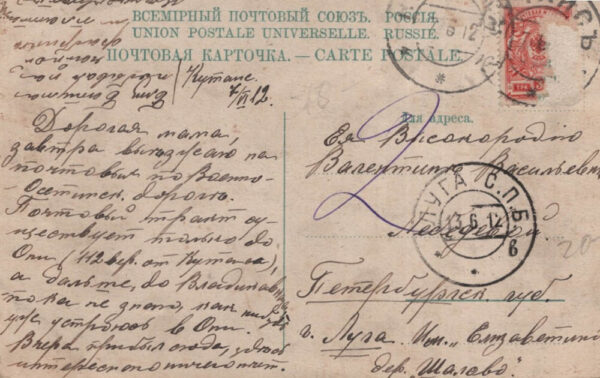 ВСЕМІРНЫЙ ПОЧТОВЫЙ СОЮЗЪ. РОССІЯ.
UNION POSTALE UNIVERSELLE. RUSSIE.
ПОЧТОВАЯ КАРТОЧКА. — CARTE POSTALE.
Кутаис.
7/VI 12.
Дорогая мама,
завтра выезжаю на
почтовых по Военно-
Осетинск. дорогѣ.
Почтовый тракт су-
ществует только до
Они (112 вер. от Кутаиса),
а дальше, до Владикавказа
пока не знаю, как
устроюсь в Они.
Вчера прибыл сюда,
интересного ничего нет.
Для адреса.
Ея Высокородію
Валентинѣ Васильевнѣ
Лебедевой
Петербургск. губ.
г. Луга. Им. „Елизаветино
дер. Шалово.
2
20
ЛУГА С.П.Б.
13 6 12
в